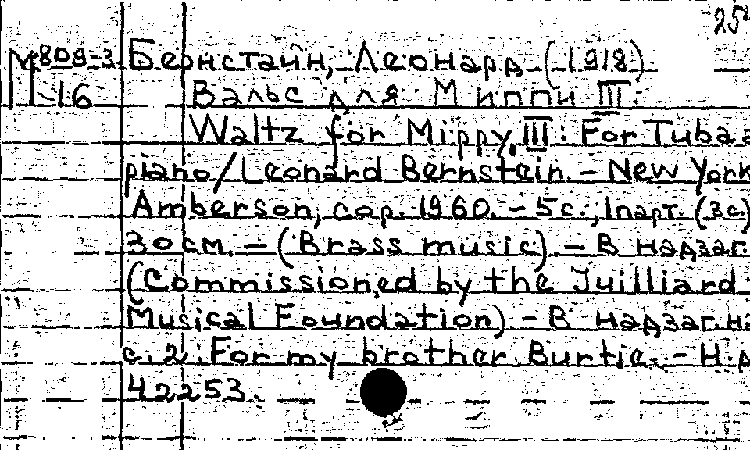 25
М 809-3 Бернстайн, Леонард (1918)
-16 Вальс для Миппи III.
Waltz for Mippy III : For Tuba a
piano / Leonard Bernstein. - New York
Amberson, cop. 1960. - 5 с., 1 парт. (3 с)
30 см. - (Brass music). - В надзаг.
(Commissioned by the Juilliard
Musical Foundation) - В надзаг. на
с. 2 : For my brother Burtie. - Н. д
42253.